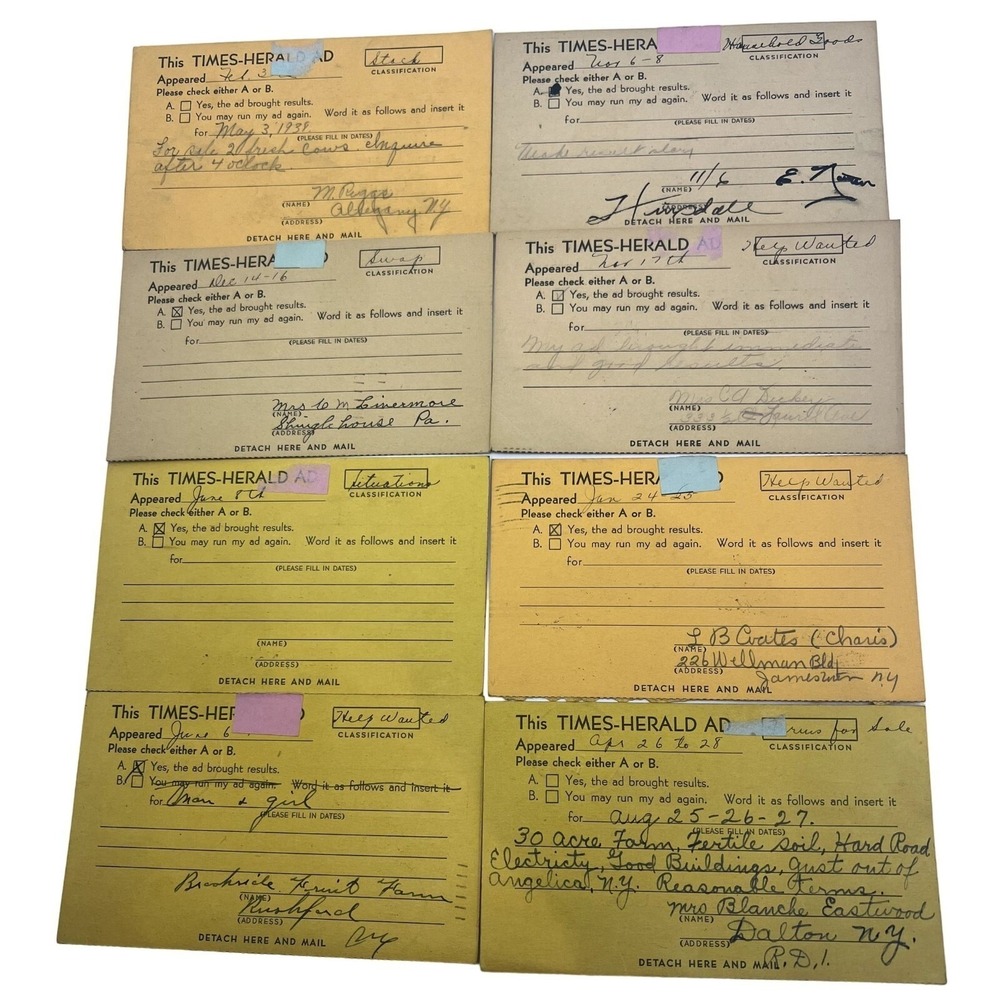 This TIMES-HERALD AD
Stock
CLASSIFICATION
Appeared Feb 3
Please check either A or B.
A. Yes, the ad brought results.
B. You may run my ad again. Word it as follows and insert it
for May 3, 1939
(PLEASE FILL IN DATES)
For sale 2 fresh cows Inquire
after 4 oclock
M. Piggs
(NAME)
Allegany NY
(ADDRESS)
DETACH HERE AND MAIL
This TIMES-HERA
Household Goods
CLASSIFICATION
Appeared Nov 6-8
Please check either A or B.
A. Yes, the ad brought results.
B. You may run my ad again. Word it as follows and insert it
for
(PLEASE FILL IN DATES)
11/6 E.
(NAME)
Hinsdale
(ADDRESS)
DETACH HERE AND MAIL
This TIMES-HERA
Swap
CLASSIFICATION
Appeared Dec 14-16
Please check either A or B.
A. Yes, the ad brought results.
B. You may run my ad again. Word it as follows and insert it
for
(PLEASE FILL IN DATES)
Mrs C M Livermore
(NAME)
Shinglehouse Pa.
(ADDRESS)
DETACH HERE AND MAIL
This TIMES-HERALD AD
Help Wanted
CLASSIFICATION
Appeared Nov 17th
Please check either A or B.
A. Yes, the ad brought results.
B. You may run my ad again. Word it as follows and insert it
for
(PLEASE FILL IN DATES)
My ad brought immediate
and good results.
Mrs C A Decker
(NAME)
333 1/2
(ADDRESS)
DETACH HERE AND MAIL
This TIMES-HERALD AD
Situations
CLASSIFICATION
Appeared June 8th
Please check either A or B.
A. Yes, the ad brought results.
B. You may run my ad again. Word it as follows and insert it
for
(PLEASE FILL IN DATES)
(NAME)
(ADDRESS)
DETACH HERE AND MAIL
This TIMES-HERA
Help Wanted
CLASSIFICATION
Appeared Jan 24-25
Please check either A or B.
A. Yes, the ad brought results.
B. You may run my ad again. Word it as follows and insert it
for
(PLEASE FILL IN DATES)
L B Coates (Charis)
(NAME)
226 Wellman Bld
(ADDRESS)
Jamestown N.Y
DETACH HERE AND MAIL
This TIMES-HER D
Help Wanted
CLASSIFICATION
Appeared June 6
Please check either A or B.
A. Yes, the ad brought results.
B. You may run my ad again. Word it as follows and insert it
for man & girl
(PLEASE FILL IN DATES)
Brookside Fruit Farm
(NAME)
Rushford
(ADDRESS)
DETACH HERE AND MAIL
NY
This TIMES-HERALD AD
Farms for Sale
CLASSIFICATION
Appeared Apr 26 to 28
Please check either A or B.
A. Yes, the ad brought results.
B. You may run my ad again. Word it as follows and insert it
for Aug 25-26-27.
(PLEASE FILL IN DATES)
30 acre Farm, Fertile soil, Hard Road
Electricty, Good Buildings, Just out of
Angelica, N.Y. Reasonable terms.
Mrs Blanche Eastwood
(NAME)
Dalton N.Y.
(ADDRESS)
R.D.1.
DETACH HERE AND MAIL